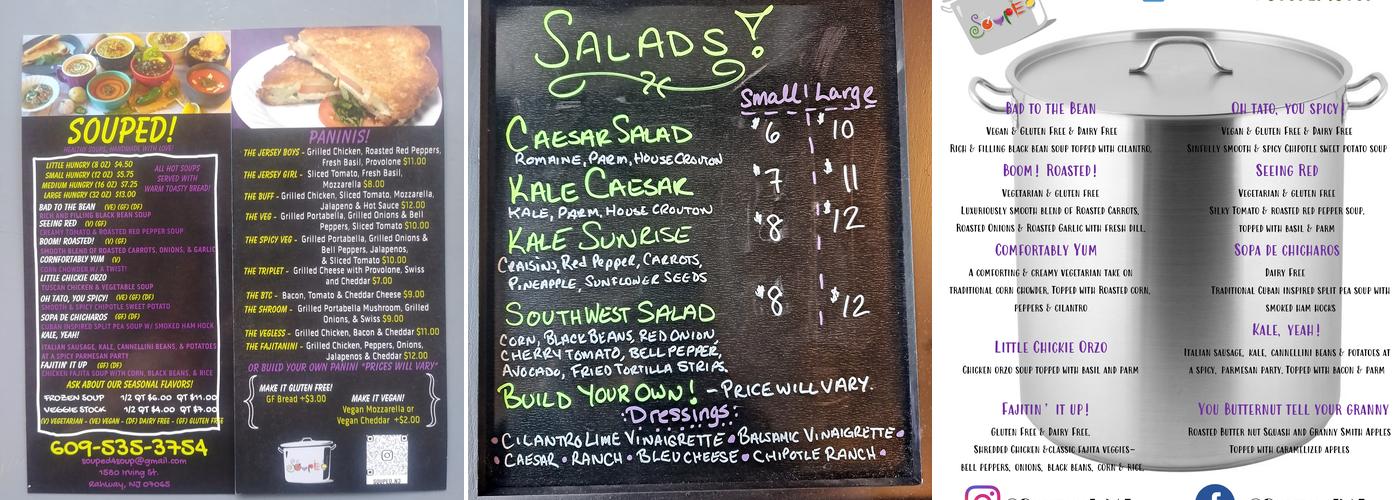 SOUPED!
HEALTHY SOUPS, HANDMADE WITH LOVE!
LITTLE HUNGRY (8 OZ) $4.50
SMALL HUNGRY (12 OZ) $5.75
MEDIUM HUNGRY (16 OZ) $7.25
LARGE HUNGRY (32 OZ) $13.00
ALL HOT SOUPS
SERVED WITH
WARM TOASTY BREAD!
BAD TO THE BEAN (VE) (GF) (DF)
RICH AND FILLING BLACK BEAN SOUP
SEEING RED (V) (GF)
CREAMY TOMATO & ROASTED RED PEPPER SOUP
BOOM! ROASTED! (V) (GF)
SMOOTH BLEND OF ROASTED CARROTS, ONIONS, & GARLIC
CORNFORTABLY YUM (V)
CORN CHOWDER W/ A TWIST!
LITTLE CHICKIE ORZO
TUSCAN CHICKEN & VEGETABLE SOUP
OH TATO, YOU SPICY! (VE) (GF) (DF)
SMOOTH & SPICY CHIPOTLE SWEET POTATO
SOPA DE CHICHAROS (GF) (DF)
CUBAN INSPIRED SPLIT PEA SOUP W/ SMOKED HAM HOCK
KALE, YEAH!
ITALIAN SAUSAGE, KALE, CANNELLINI BEANS, & POTATOES
AT A SPICY PARMESAN PARTY
FAJITIN' IT UP (GF) (DF)
CHICKEN FAJITA SOUP WITH CORN, BLACK BEANS, & RICE
ASK ABOUT OUR SEASONAL FLAVORS!
FROZEN SOUP 1/2 QT $6.00 QT $11.00
VEGGIE STOCK 1/2 QT $4.00 QT $7.00
(V) VEGETARIAN - (VE) VEGAN - (DF) DAIRY FREE - (GF) GLUTEN FREE
609-535-3754
souped4soup@gmail.com
1580 Irving St.
Rahway, NJ 07065
PANINIS!
THE JERSEY BOYS - Grilled Chicken, Roasted Red Peppers,
Fresh Basil, Provolone $11.00
THE JERSEY GIRL - Sliced Tomato, Fresh Basil,
Mozzarella $8.00
THE BUFF - Grilled Chicken, Sliced Tomato, Mozzarella,
Jalapeno & Hot Sauce $12.00
THE VEG - Grilled Portabella, Grilled Onions & Bell
Peppers, Sliced Tomato $10.00
THE SPICY VEG - Grilled Portabella, Grilled Onions &
Bell Peppers, Jalapenos,
& Sliced Tomato $10.00
THE TRIPLET - Grilled Cheese with Provolone, Swiss
and Cheddar $7.00
THE BTC - Bacon, Tomato & Cheddar Cheese $9.00
THE SHROOM - Grilled Portabella Mushroom, Grilled
Onions, & Swiss $9.00
THE VEGLESS - Grilled Chicken, Bacon & Cheddar $11.00
THE FAJITANINI - Grilled Chicken, Peppers, Onions,
Jalapenos & Cheddar $12.00
OR BUILD YOUR OWN PANINI *PRICES WILL VARY*
MAKE IT GLUTEN FREE!
GF Bread +$3.00
MAKE IT VEGAN!
Vegan Mozzarella or
Vegan Cheddar +$2.00
SOUPED
SOUPED_NJ
SALADS!
Small Large
CAESAR SALAD $6 $10
ROMAINE, PARM, HOUSE CROUTON
KALE CAESAR $7 $11
KALE, PARM, HOUSE CROUTON
KALE SUNRISE $8 $12
CRAISINS, Red Pepper, CARROTS,
PINEAPPLE, SUNFLOWER SEEDS
SOUTHWEST SALAD $8 $12
CORN, BLACK BEANS, RED ONION,
CHERRY TOMATO, BELL PEPPER,
AVOCADO, FRIED TORTILLA STRIPS.
BUILD YOUR OWN! - PRICE WILL VARY.
:Dressings:
• CILANTRO LIME VINAIGRETTE • BALSAMIC VINAIGRETTE •
CAESAR • RANCH • BLEU CHEESE • CHIPOTLE RANCH •
SOUPED
BAD TO THE BEAN
VEGAN & GLUTEN FREE & DAIRY FREE
RICH & FILLING BLACK BEAN SOUP TOPPED WITH CILANTRO.
BOOM! ROASTED!
VEGETARIAN & GLUTEN FREE
LUXURIOUSLY SMOOTH BLEND OF ROASTED CARROTS,
ROASTED ONIONS & ROASTED GARLIC WITH FRESH DILL.
COMFORTABLY YUM
A COMFORTING & CREAMY VEGETARIAN TAKE ON
TRADITIONAL CORN CHOWDER, TOPPED WITH ROASTED CORN,
PEPPERS & CILANTRO
LITTLE CHICKIE ORZO
CHICKEN ORZO SOUP TOPPED WITH BASIL AND PARM
FAJITIN' IT UP!
GLUTEN FREE & DAIRY FREE.
SHREDDED CHICKEN & CLASSIC FAJITA VEGGIES-
BELL PEPPERS, ONIONS, BLACK BEANS, CORN & RICE.
OH TATO, YOU SPICY!
VEGAN & GLUTEN FREE & DAIRY FREE
SINFULLY SMOOTH & SPICY CHIPOTLE SWEET POTATO SOUP
SEEING RED
VEGETARIAN & GLUTEN FREE
SILKY TOMATO & ROASTED RED PEPPER SOUP,
TOPPED WITH BASIL & PARM
SOPA DE CHICHAROS
DAIRY FREE
TRADITIONAL CUBAN INSPIRED SPLIT PEA SOUP WITH
SMOKED HAM HOCKS
KALE, YEAH!
ITALIAN SAUSAGE, KALE, CANNELLINI BEANS & POTATOES AT
A SPICY, PARMESAN PARTY, TOPPED WITH BACON & PARM
YOU BUTTERNUT TELL YOUR GRANNY
ROASTED BUTTER NUT SQUASH AND GRANNY SMITH APPLES
TOPPED WITH CARAMELIZED APPLES